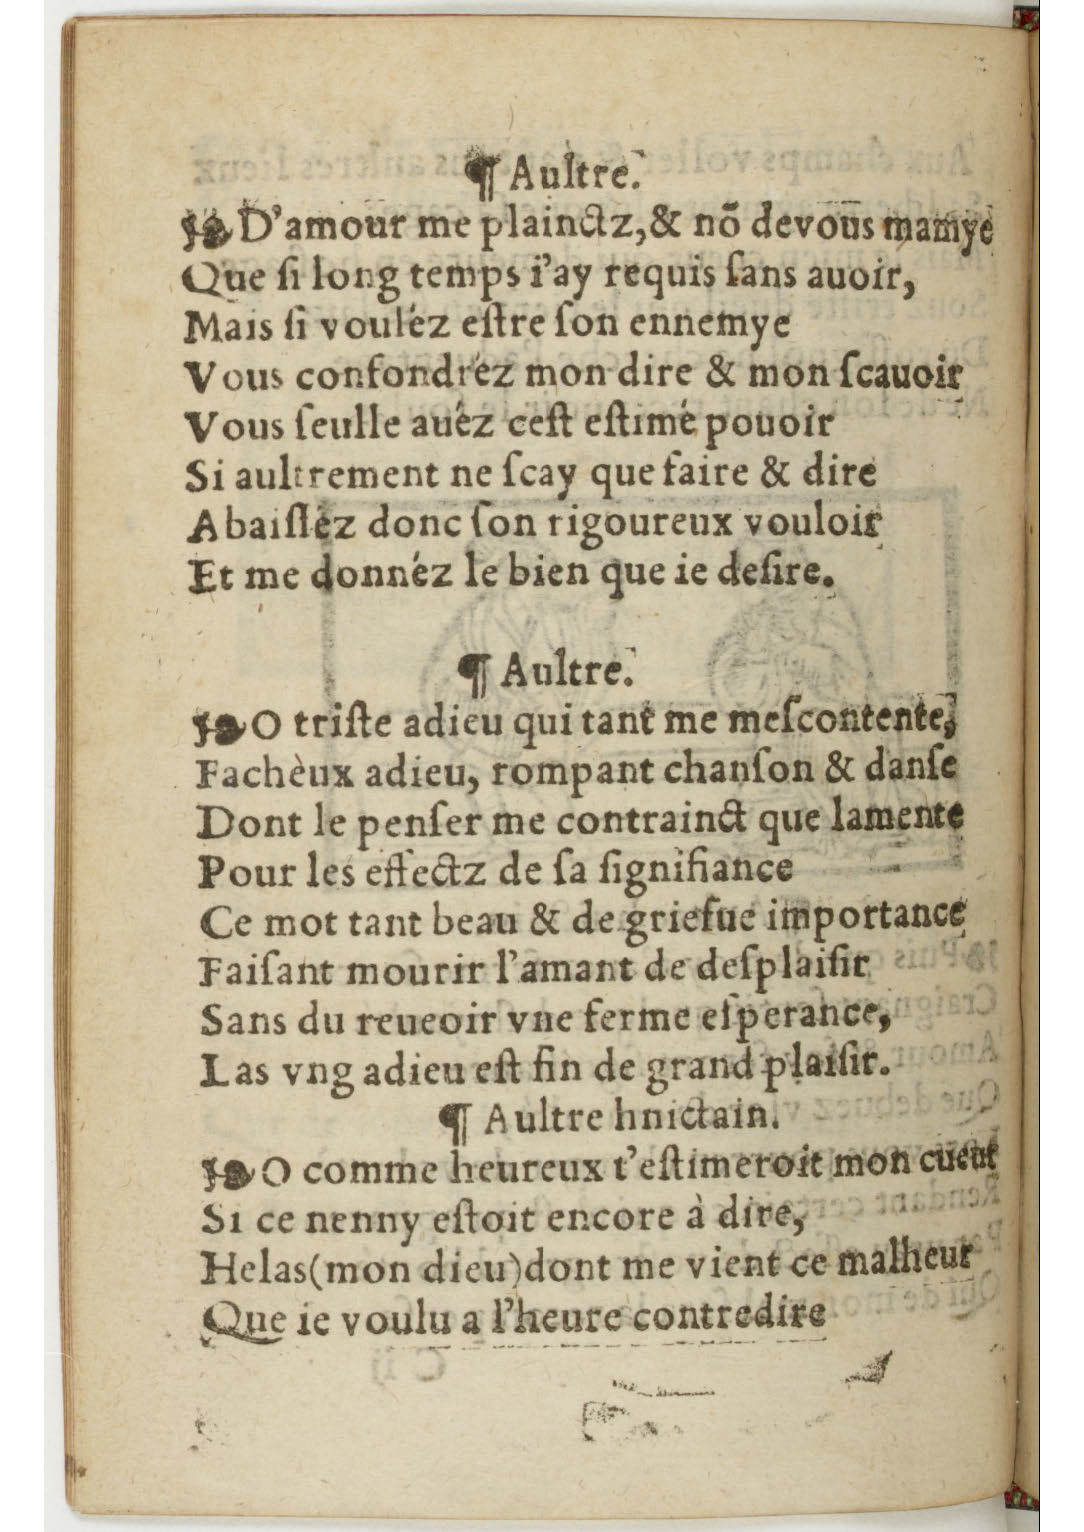 ¶ Aultre.
❧ D'amour me plainctz,& nõ devous mamye
Que ſi long temps i'ay requis ſans auoir,
Mais ſi vouléz eſtre ſon ennemye
Vous confondréz mon dire & mon ſcauoir
Vous ſeulle auéz ceſt eſtimé pouoir
Si aultrement ne ſcay que faire & dire
Abaiſſéz donc ſon rigoureux vouloir
Et me donnéz le bien que ie deſire.
¶ Aultre.
❧ O triſte adieu qui tant me meſcontente,
Fachèux adieu, rompant chanſon & danſe
Dont le penſer me contrainct que lamente
Pour les effectz de ſa ſignifiance
Ce mot tant beau & de griefue importance
Faiſant mourir l'amant de deſplaiſir
Sans du reueoir vne ferme eſperance,
Las vng adieu eſt fin de grand plaiſir.
¶ Aultre hnictain.
❧ O comme heureux t'eſtimeroit mon cueur
Si ce nenny eſtoit encore à dire,
Helas(mon dieu)dont me vient ce malheur
Que ie voulu a l'heure contredire